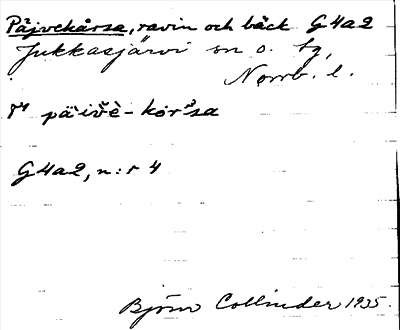 Päjvekårsa, ravin och bäck G4a2
Jukkasjärvi sn o. tg,
Norrb. l.
päivè - kor'sa
G4a2, n:r 4
Björn Collinder 1935.